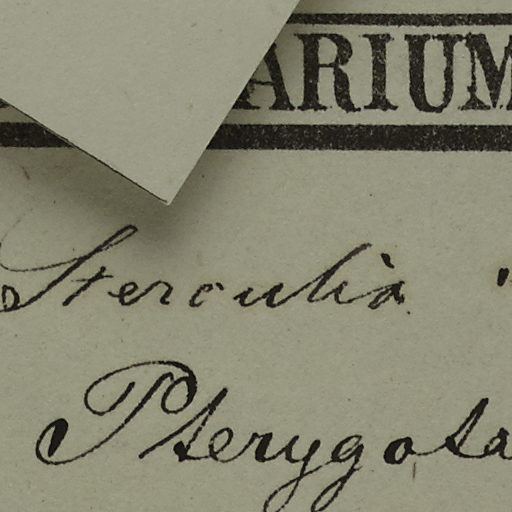 ARIUM
Sterculia "
Pterygota